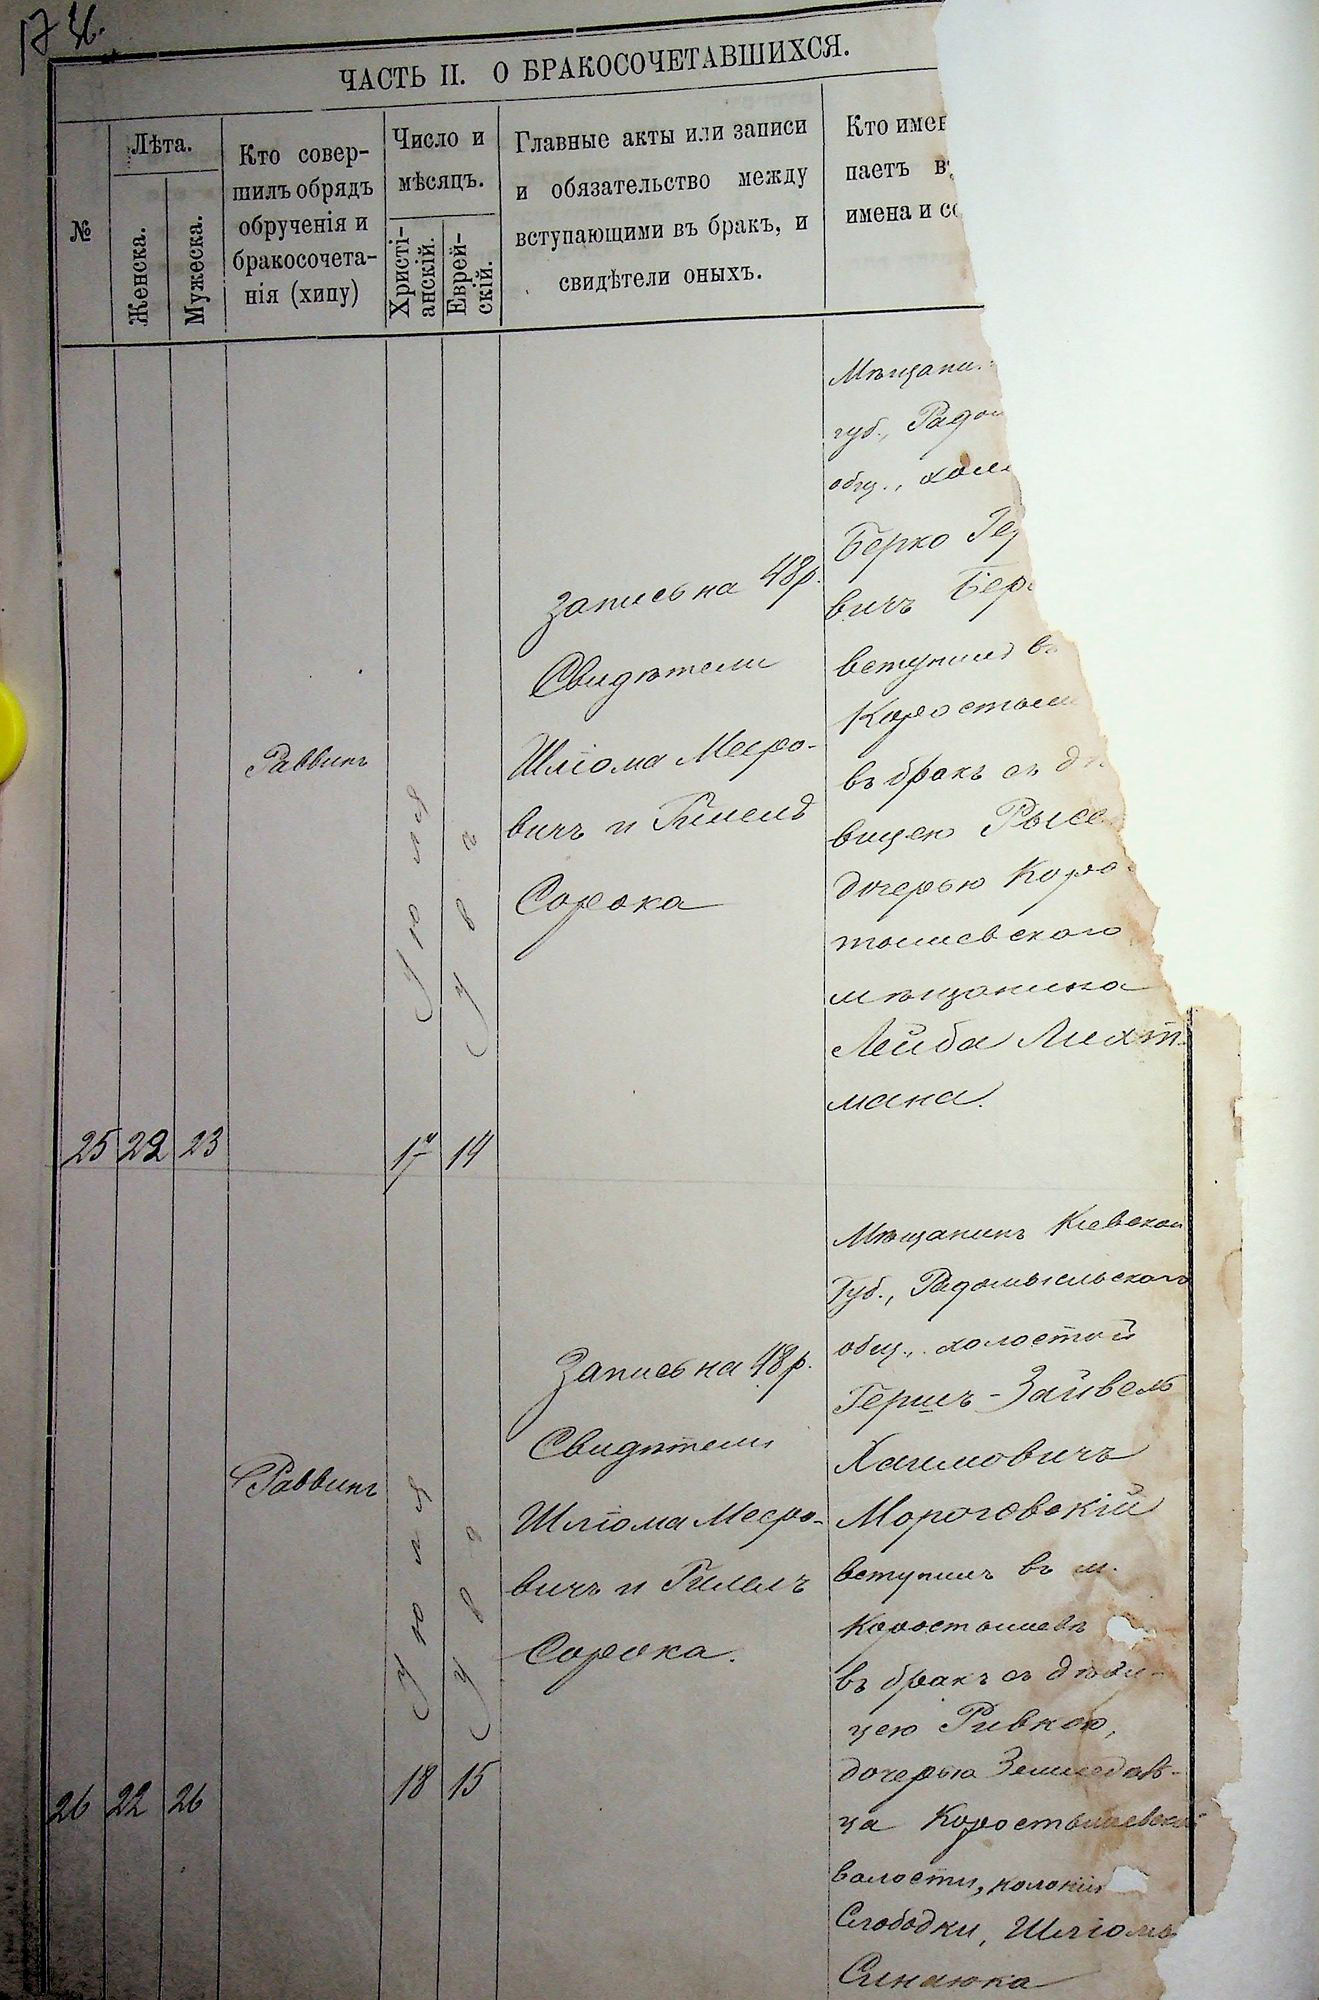 ЧАСТЬ II. О БРАКОСОЧЕТАВШИХСЯ.
№
Лѣта.
Женска.
Мужеска.
Кто совер-
шилъ обрядъ
обрученія и
бракосочета-
нія (хипу)
Число и
мѣсяцъ.
Христі-
анскій.
Еврей-
скій.
Главные акты или записи
и обязательство между
вступающими въ бракъ, и
свидѣтели оныхъ.
Кто имен
паетъ въ
имена и со
25
22
23
Раввинъ
Іюля
17
14
Запись на 48 р.
Свидѣтели
Шліома Мееро-
вичъ и Гилелъ
Сорока
Мѣщани
губ., Радом
общ., холо
Берко
вичъ Бер
вступилъ въ
Коростыш
въ бракъ съ дѣ
вицею Рысе
дочерью Коро-
стышевского
мѣщанина
Лейба Лихт-
мана.
26
22
26
Раввинъ
Іюля
18
15
Запись на 48 р.
Свидѣтели
Шліома Мееро-
вичъ и Гилелъ
Сорока.
Мѣщанинъ Кіевской
Губ., Радомысльского
общ., холостой
Гершъ-Зайвель
Хаимовичъ
Мороговскій
вступилъ въ м.
Коростышевѣ
въ бракъ съ дѣви-
цею Ривкою,
дочерью Земледѣль-
ца Коростышевской
волости, колоніи
Слободки, Шліомы
Синаюка